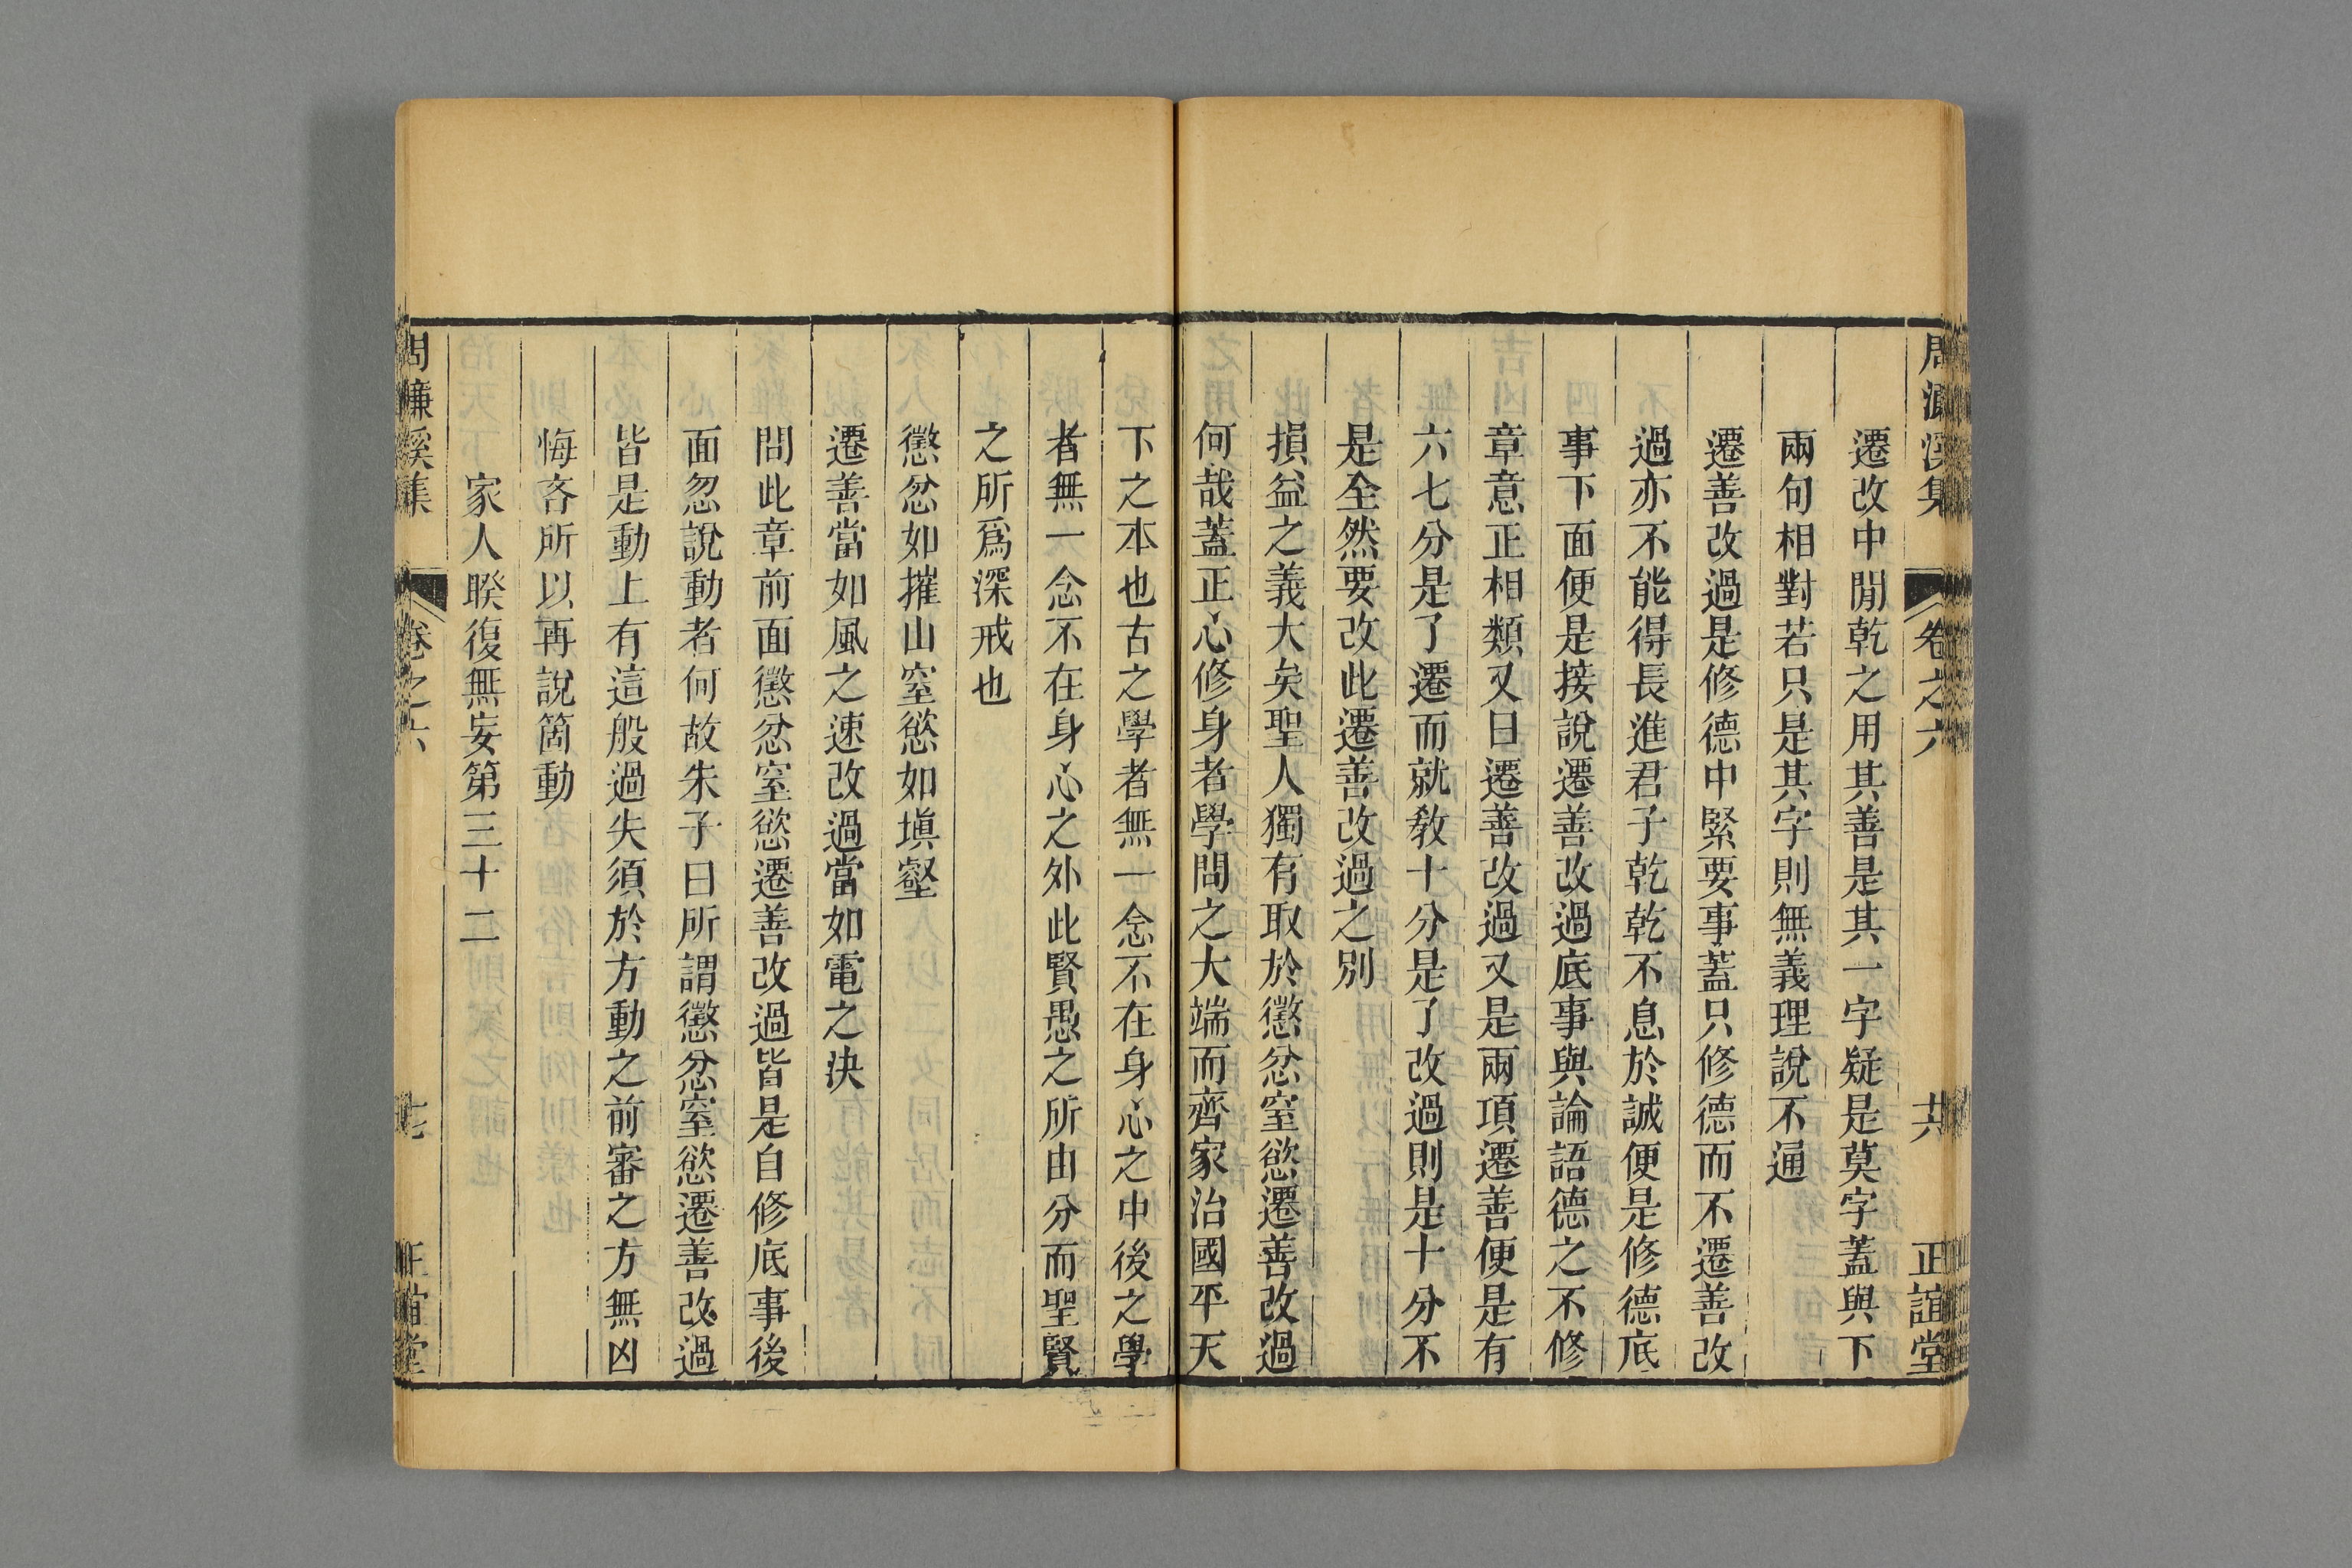 周濂溪集 卷之六 共 正誼堂
遷改中閒乾之用其善是其一字疑是莫字蓋與下
兩句相對若只是其字則無義理說不通
遷善改過是修德中緊要事蓋只修德而不遷善改
過亦不能得長進君子乾乾不息於誠便是修德底
事下面便是接說遷善改過底事與論語德之不修
章意正相類又曰遷善改過又是兩項遷善便是有
六七分是了遷而就教十分是了改過則是十分不
是全然要改此遷善改過之別
損益之義大矣聖人獨有取於懲忿窒慾遷善改過
何哉蓋正心修身者學問之大端而齊家治國平天
下之本也古之學者無一念不在身心之中後之學
者無一念不在身心之外此賢愚之所由分而聖賢
之所爲深戒也
懲忿如摧山窒慾如塡壑
遷善當如風之速改過當如電之決
問此章前面懲忿窒慾遷善改過皆是自修底事後
面忽說動者何故朱子曰所謂懲忿窒慾遷善改過
皆是動上有這般過失須於方動之前審之方無凶
悔吝所以再說箇動
家人睽復無妄第三十二
周濂溪集 卷之六 七 正誼堂